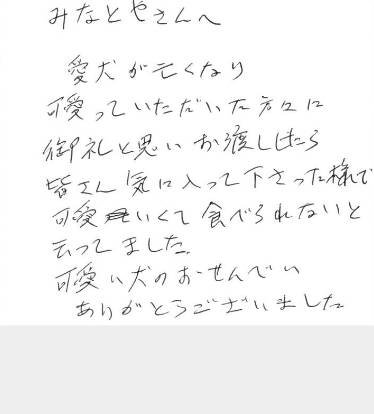 みなとやさんへ
愛犬が亡くなり
可愛っていただいた方々に
御礼と思いお渡ししたら
皆さん気に入って下さった様で
可愛いくて食べられないと
云ってました。
可愛い犬のおせんべい
ありがとうございました